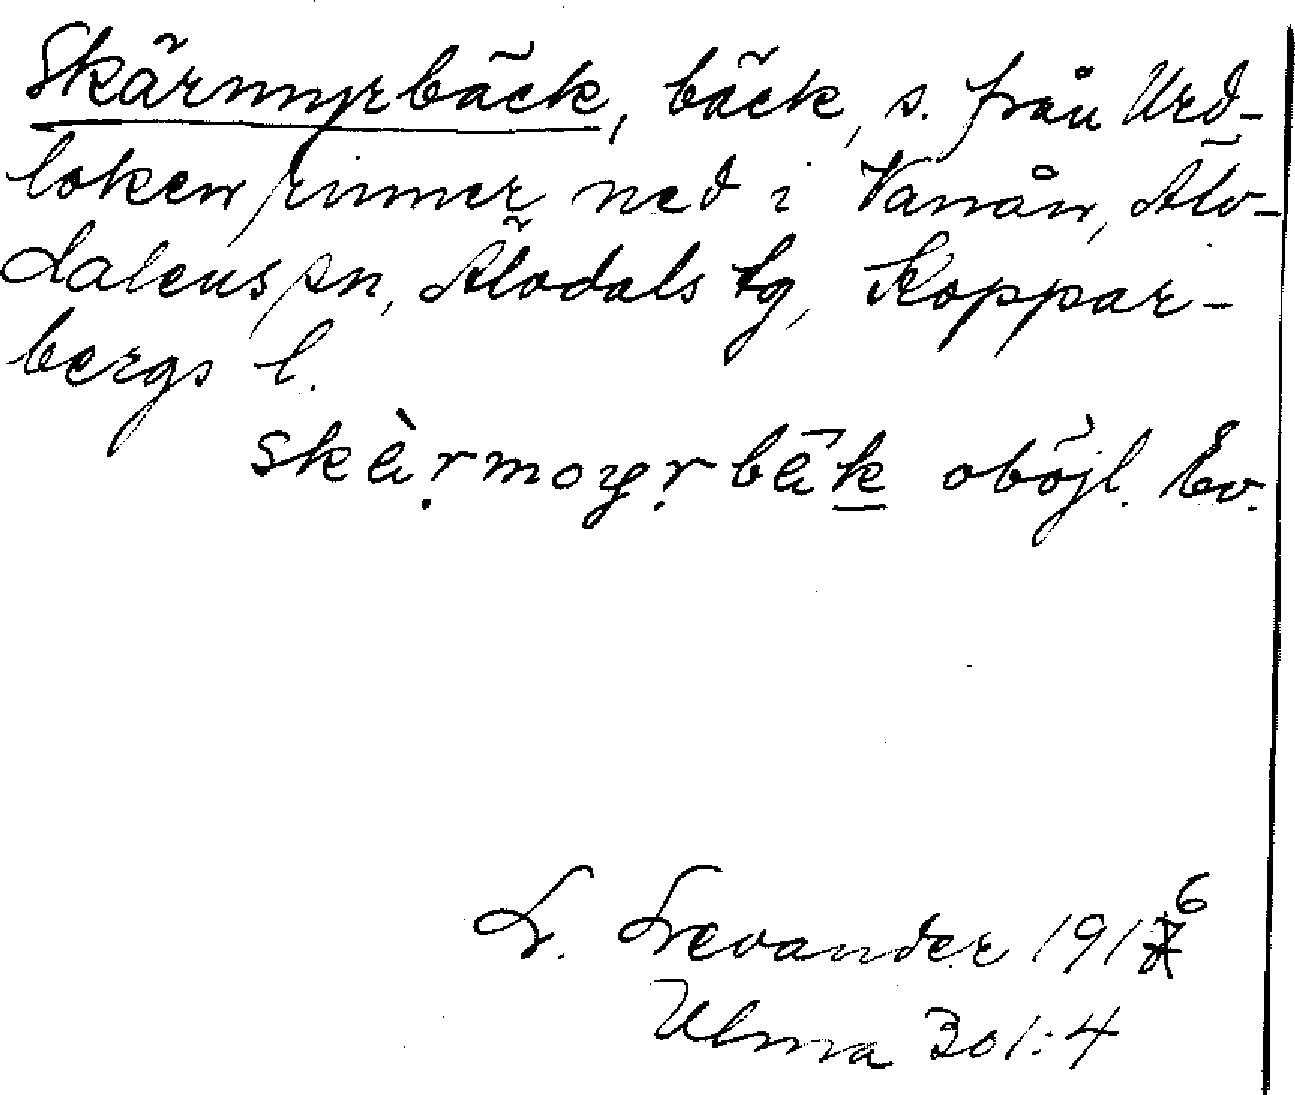 Skärmyrbäck, bäck, s. från Urd-
loken rinner ned i Vanån, Älv-
dalens sn, Älvdals tg, Koppar-
bergs l.
skèrmoyrbäk oböjl. Ev.
L. Levander 1916
Ulma 301:4